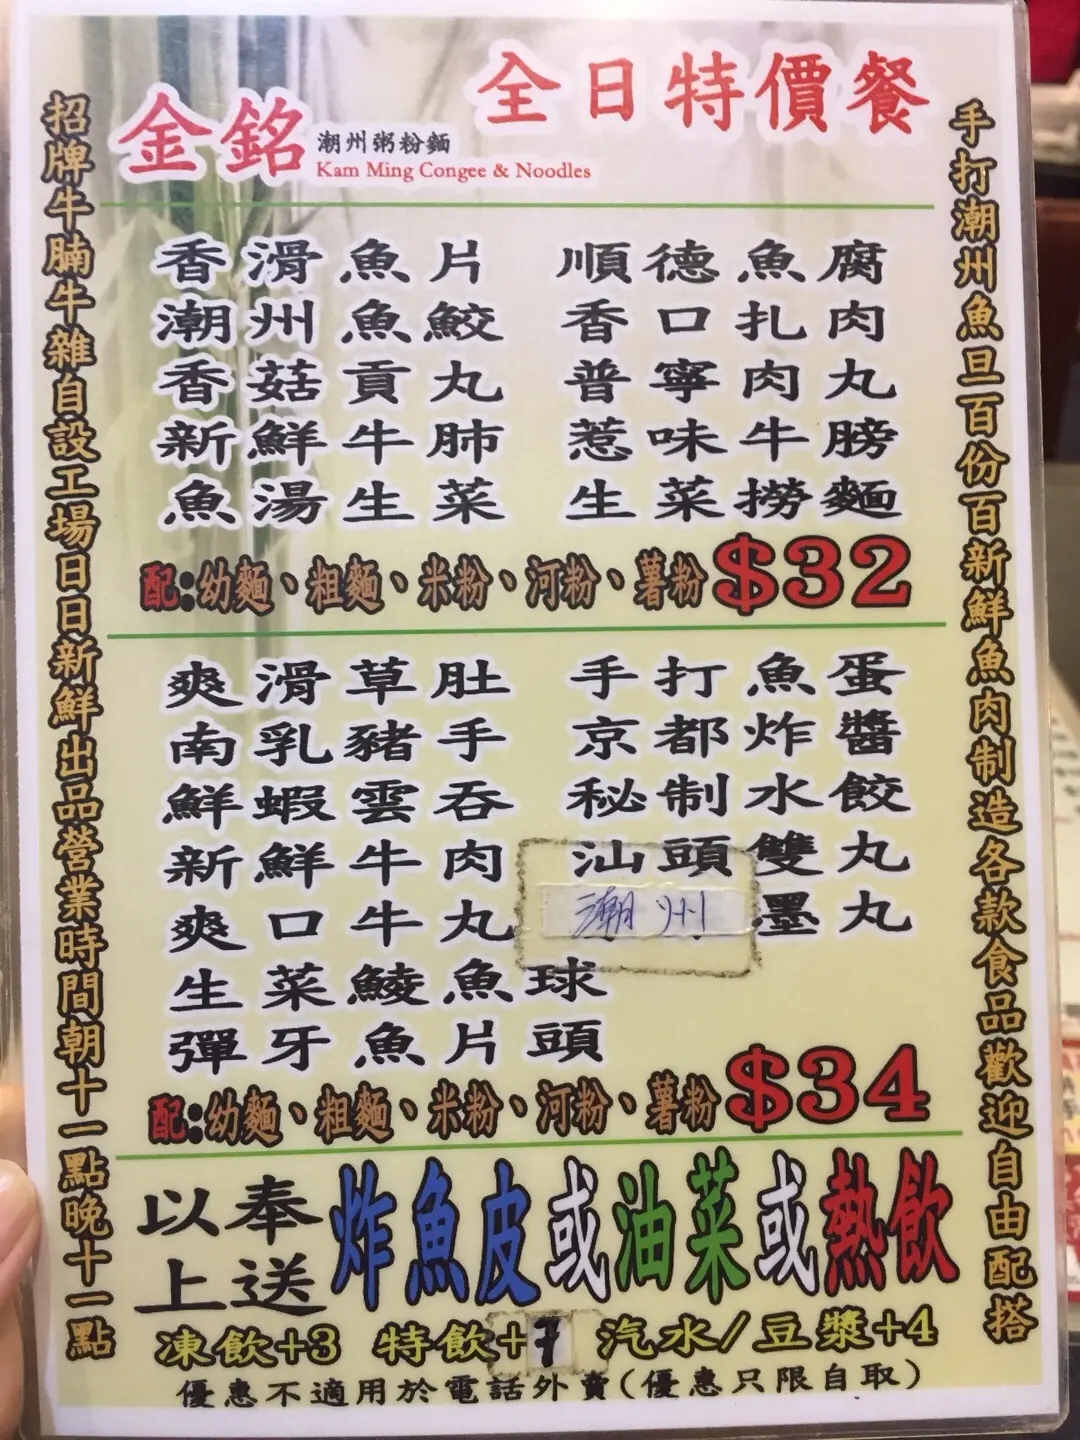 全日特價餐
金銘 潮州粥粉麵
Kam Ming Congee & Noodles
招牌牛腩牛雜自設工場日日新鮮出品營業時間朝十一點晚十一點
手打潮州魚旦百份百新鮮魚肉制造各款食品歡迎自由配搭
香滑魚片 順德魚腐
潮州魚鮫 香口扎肉
香菇貢丸 普寧肉丸
新鮮牛肺 惹味牛膀
魚湯生菜 生菜撈麵
配:幼麵、粗麵、米粉、河粉、薯粉 $32
爽滑草肚 手打魚蛋
南乳豬手 京都炸醬
鮮蝦雲吞 秘制水餃
新鮮牛肉 汕頭雙丸
爽口牛丸 潮州墨丸
生菜鯪魚球
彈牙魚片頭
配:幼麵、粗麵、米粉、河粉、薯粉 $34
以上奉送 炸魚皮或油菜或熱飲
凍飲+3 特飲+7 汽水/豆漿+4
優惠不適用於電話外賣(優惠只限自取)